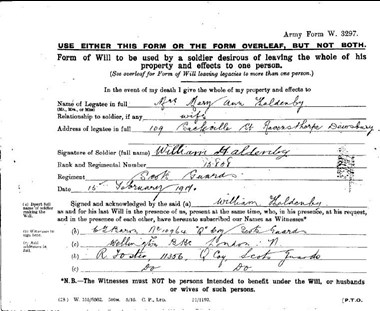 Army Form W. 3297.
USE EITHER THIS FORM OR THE FORM OVERLEAF, BUT NOT BOTH.
Form of Will to be used by a soldier desirous of leaving the whole of his
property and effects to one person.
(See overleaf for Form of Will leaving legacies to more than one person.)
In the event of my death I give the whole of my property and effects to
Name of Legatee in full Mrs Mary Ann Haldenby
(Mr., Mrs. or Miss)
Relationship to soldier, if any wife
Address of legatee in full 109 St Ravensthorpe Dewsbury
Signature of Soldier (full name) William Haldenby
Rank and Regimental Number
Regiment Scots Guards
Date 15th February
Signed and acknowledged by the said (a) William Haldenby
as and for his last Will in the presence of us, present at the same time, who, in his presence, at his request,
and in the presence of each other, have hereunto subscribed our Names as Witnesses*
(b) Scots Guards
(c) Wellington Bks London
(b) R. Foster 11356, Coy Scots Guards
(c) Do Do
*N.B.—The Witnesses MUST NOT be persons intended to benefit under the Will, or husbands
or wives of such persons.
[P.T.O.